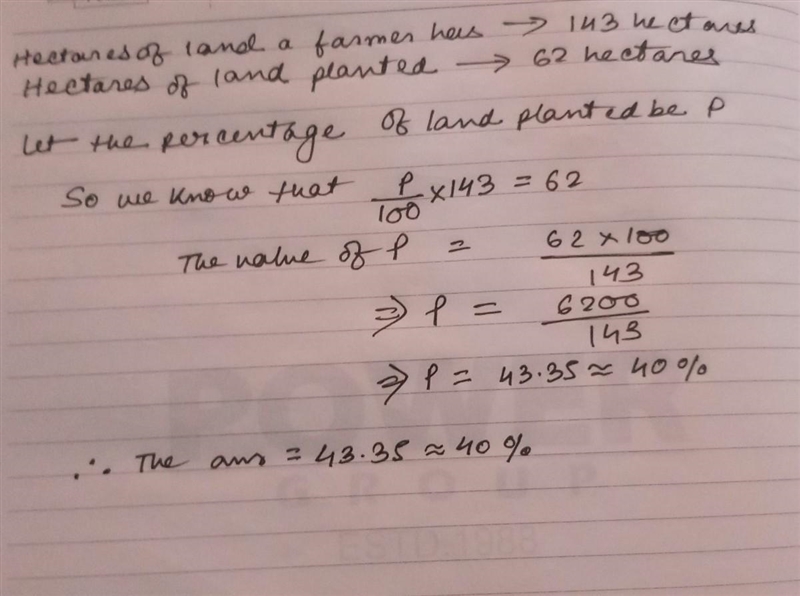 Hectares of land a farmer has → 143 hectares
Hectares of land planted → 62 hectares
Let the percentage of land planted be P
So we know that P/100 × 143 = 62
The value of P = 62 × 100 / 143
⇒ P = 6200 / 143
⇒ P = 43.35 ≈ 40%
∴ The ans = 43.35 ≈ 40%
POWER
GROUP
ESTD. 1988